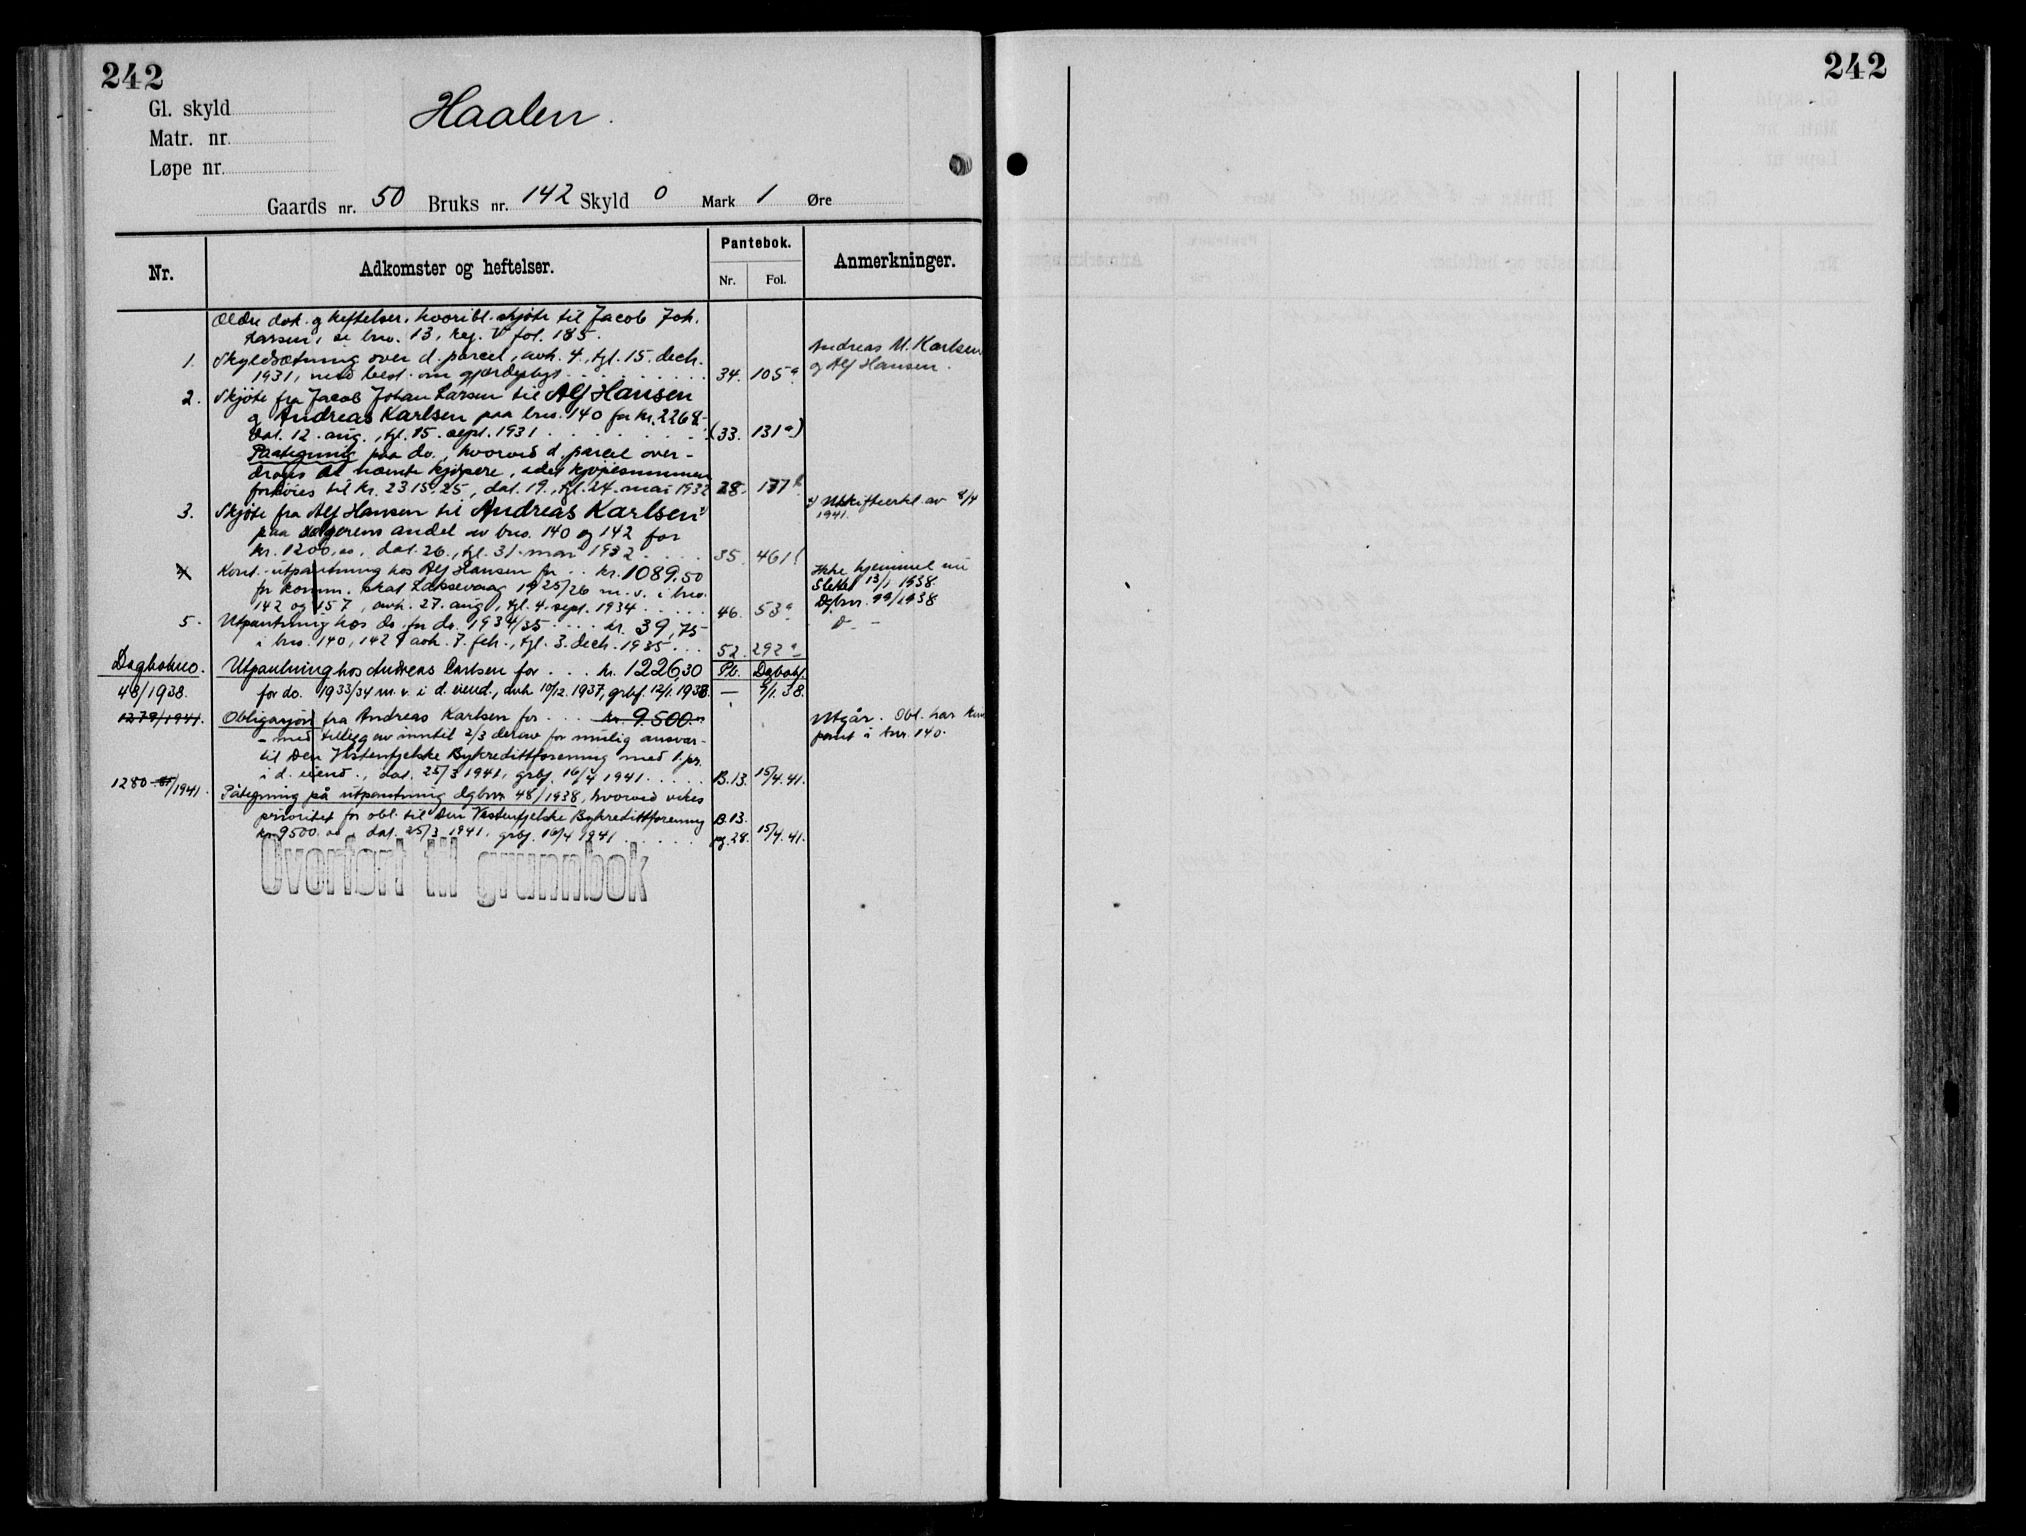 242
242
Gl. skyld
Haalen.
Matr. nr.
Løpe nr.
Gaards nr. 50 Bruks nr. 142 Skyld 0 Mark 1 Øre
Nr.
Adkomster og heftelser.
Pantebok.
Nr.
Fol.
Anmerkninger.
Ældre dok. og heftelser, hvoribl. skjøte til Jacob Joh.
Larsen, se bno. 13, reg. V fol. 185.
1. Skyldsætning over d. parcel, avh. 4., tgl. 15. decb.
1931, med best. om gjærdeplygt 34. 105a
Andreas M. Karlsen
og Alf Hansen.
2. Skjøte fra Jacob Johan Larsen til Alf Hansen
og Andreas Karlsen paa bno. 140 for kr. 2268,-
dat. 12. aug., tgl. 15. sept. 1931 (33. 131a)
Paategning paa do., hvorved d. parcel over-
drages til nævnte kjøpere, idet kjøpesummen
forhøies til kr. 2315,25, dat. 19., tgl. 24. mai 1932 28. 177b
3. Skjøte fra Alf Hansen til Andreas Karlsen
paa sælgerens andel av bno. 140 og 142 for
kr. 1200,00, dat. 26., tgl. 31. mai 1932 35. 461
Uskifteerkl. av 8/4
1941.
4 Kont. utpantning hos Alf Hansen for kr. 1089,50
for komm. skat Laksevaag 1925/26 m.v. i bno.
142 og 157, avh. 27. aug., tgl. 4. sept. 1934 46. 53a
Ikke hjemmel nu
Slettet 13/1 1938.
Dgbnr. 99/1938
5. Utpantning hos do. for do. 1934/35 kr. 39,75
i bno. 140, 142, avh. 7. feb., tgl. 3. decb. 1935 52. 292a
Dagbokno. Utpantning hos Andreas Carlsen for kr. 1226,30 Pb. Dagbokf.
48/1938. for do. 1933/34 m.v. i d. eiend., avh. 10/12. 1937, grbf. 12/1. 1938. — 7/1. 38.
1279/1941. Obligasjon fra Andreas Karlsen for kr. 9.500.00
- med tillegg av inntil 2/3 derav for mulig ansvar -
til Den Vestenfjelske Bykredittforening med 1. pr.
i d. eiend., dat. 25/3 1941, grbf. 16/4 1941 B.13. 15/4. 41.
Utgår. Obl. har kun
pant i bnr. 140.
1280/1941. Påtegning på utpantning dgbnr 48/1938, hvorved vikes
prioritet for obl. til Den Vestenfjelske Bykredittforening B.13.
kr. 9500.00, dat. 25/3 1941, grbf. 16/4 1941 pg. 28. 15/4. 41.
Overført til grunnbok